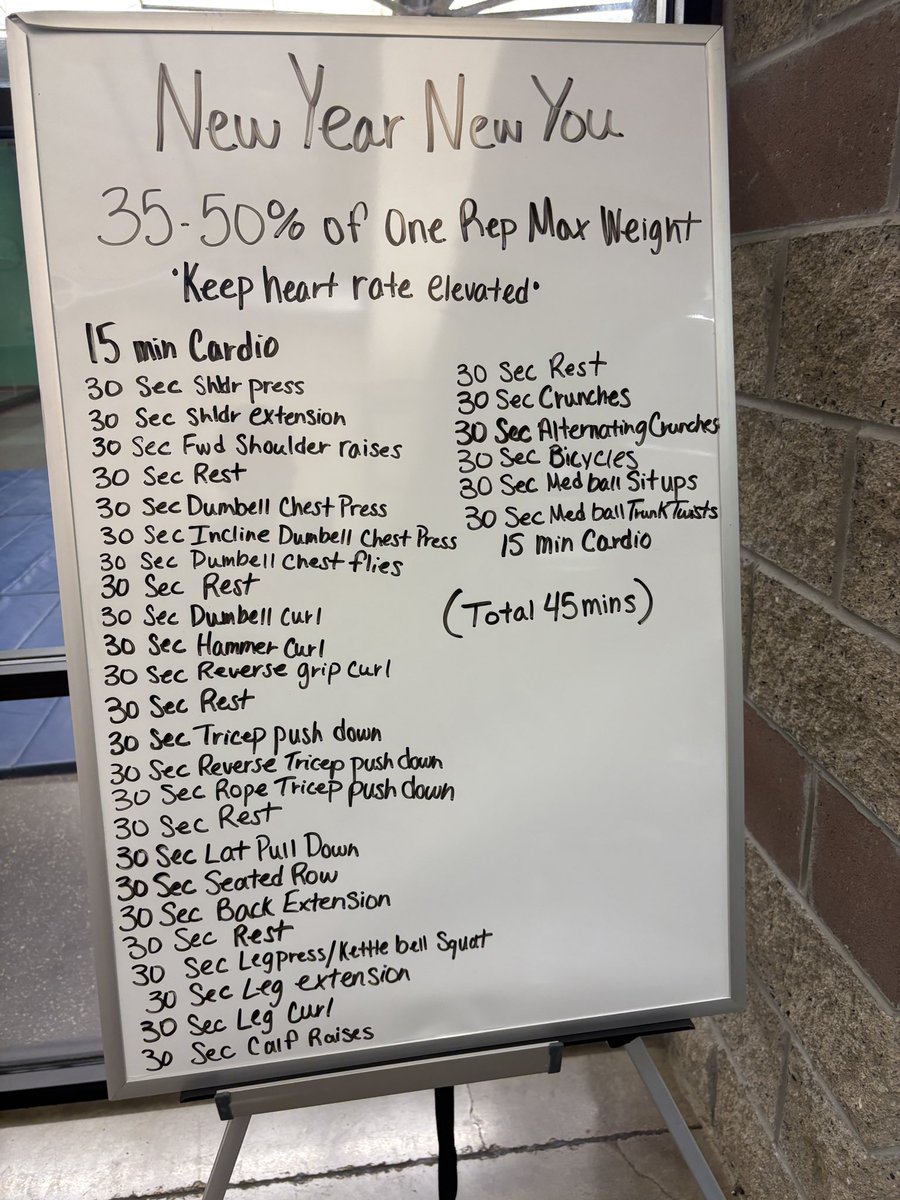 New Year New You
35-50% of One Rep Max Weight
•Keep heart rate elevated•
15 min Cardio
30 Sec Shldr press
30 Sec Shldr extension
30 Sec Fwd Shoulder raises
30 Sec Rest
30 Sec Dumbell Chest Press
30 Sec Incline Dumbell Chest Press
30 Sec Dumbell Chest flies
30 Sec Rest
30 Sec Dumbell Curl
30 Sec Hammer Curl
30 Sec Reverse grip curl
30 Sec Rest
30 Sec Tricep push down
30 Sec Reverse Tricep push down
30 Sec Rope Tricep push down
30 Sec Rest
30 Sec Lat Pull Down
30 Sec Seated Row
30 Sec Back Extension
30 Sec Rest
30 Sec Legpress/Kettle bell Squat
30 Sec Leg extension
30 Sec Leg Curl
30 Sec Calf Raises
30 Sec Rest
30 Sec Crunches
30 Sec Alternating Crunches
30 Sec Bicycles
30 Sec Med ball Sit ups
30 Sec Med ball Trunk Twists
15 min Cardio
(Total 45 mins)